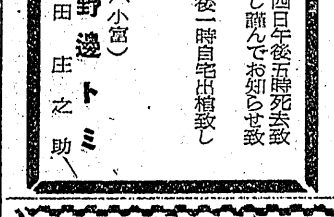 四日午後五時死去致
し謹んでお知らせ致
後一時自宅出棺致し
小宮）
野邊トミ
田庄之助